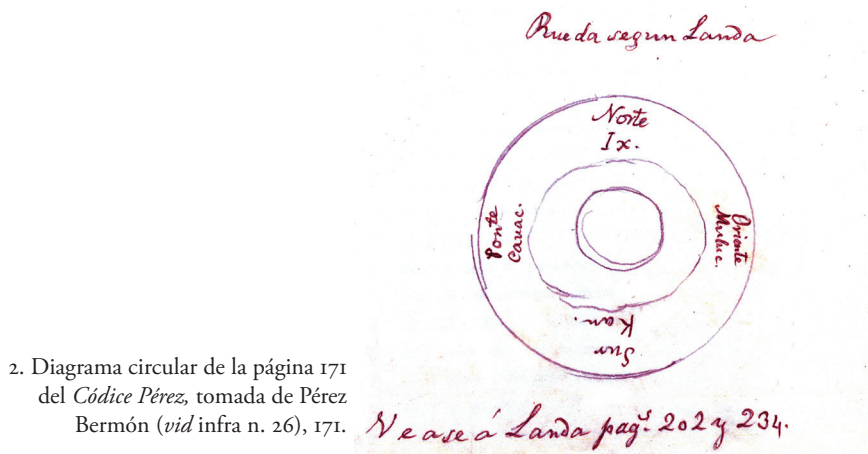 Rueda segun Landa
Norte
Ix.
Oriente
Muluc.
Ponte
Cauac.
Sur
Kan.
2. Diagrama circular de la página 171
del Códice Pérez, tomada de Pérez
Bermón (vid infra n. 26), 171.
Vease á Landa pagˢ. 202 y 234.